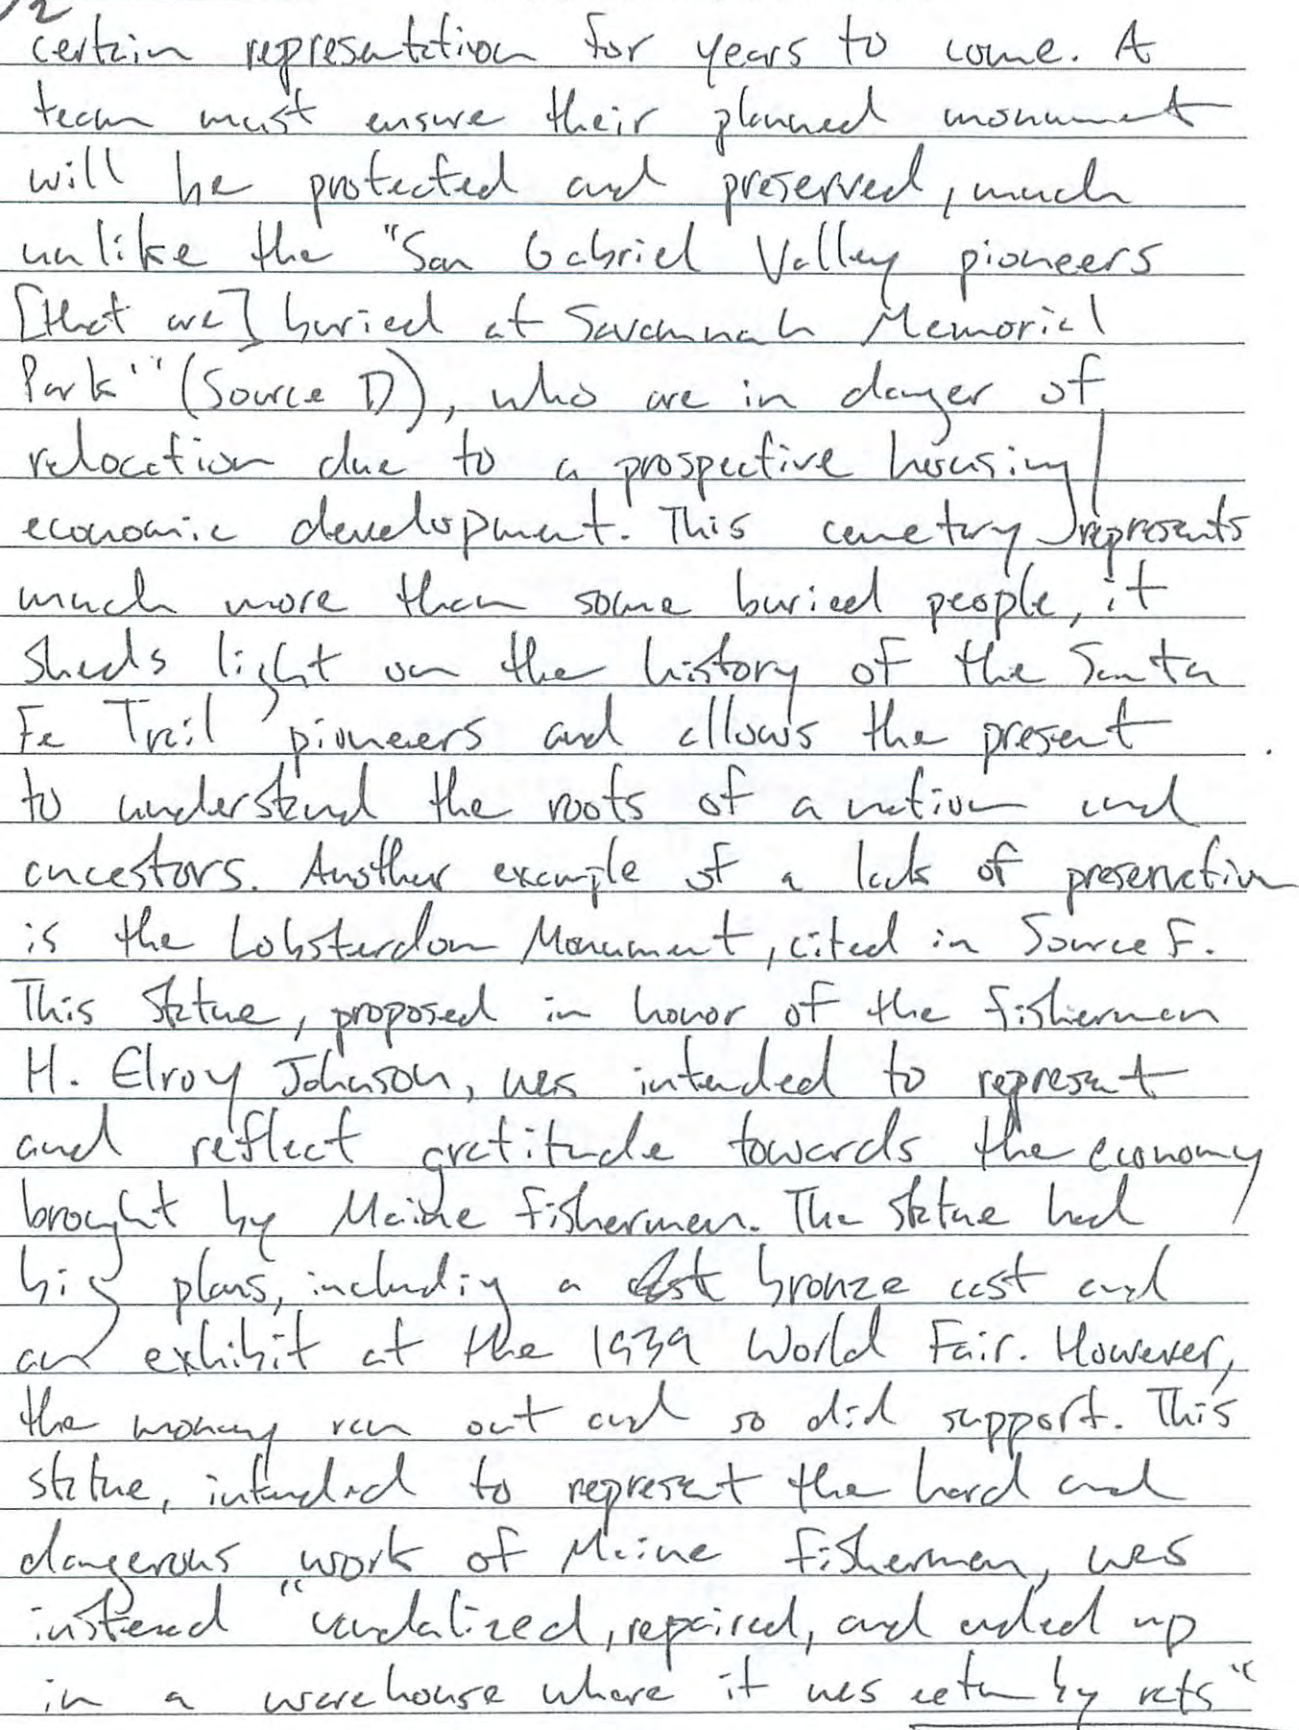 2
certain representation for years to come. A
team must ensure their planned monument
will be protected and preserved, much
unlike the "San Gabriel Valley pioneers
[that are] buried at Savannah Memorial
Park'" (Source D), who are in danger of
relocation due to a prospective housing/
economic development. This cemetary represents
much more than some buried people, it
sheds light on the history of the Santa
Fe Trail pioneers and allows the present
to understand the roots of a nation and
ancestors. Another example of a lack of preservation
is the Lobsterdom Monument, cited in Source F.
This statue, proposed in honor of the fisherman
H. Elroy Johnson, was intended to represent
and reflect gratitude towards the economy
brought by Maine fishermen. The statue had
big plans, including a bronze cast and
an exhibit at the 1939 World Fair. However,
the money ran out and so did support. This
statue, intended to represent the hard and
dangerous work of Maine fishermen, was
instead "vandalized, repaired, and ended up
in a warehouse where it was eaten by rats"